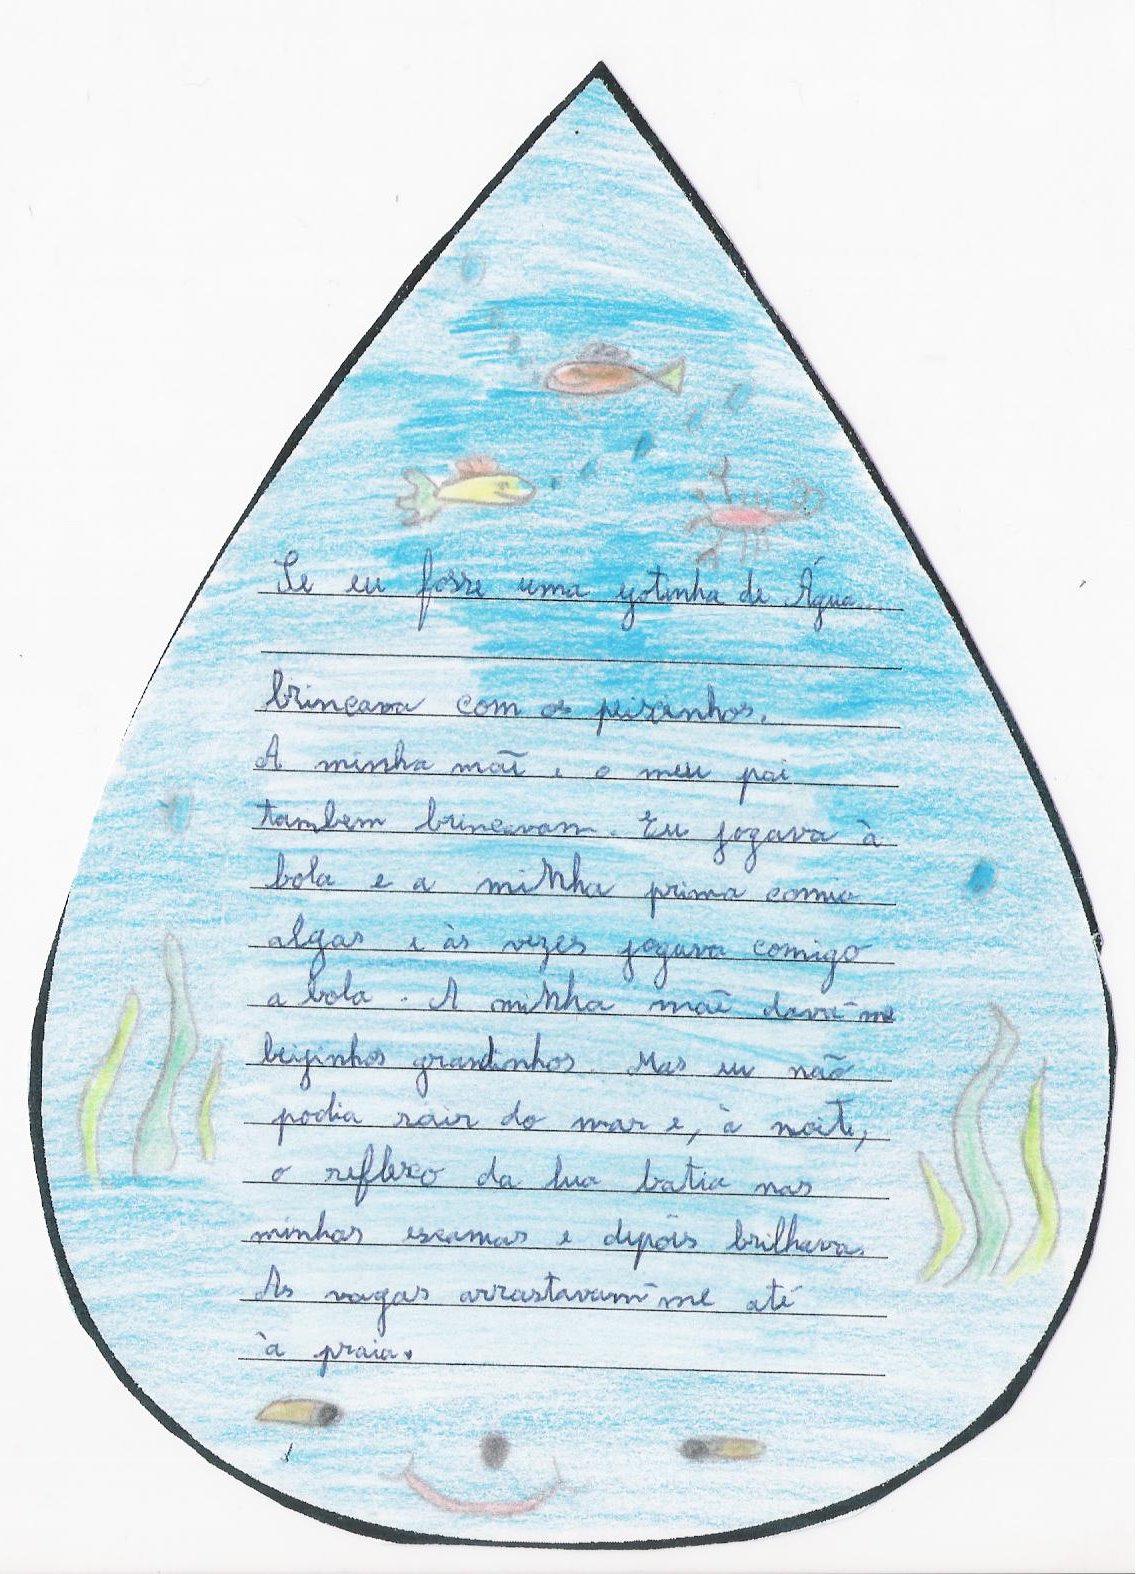 Se eu fosse uma gotinha de Água...
brincava com os peixinhos.
A minha mãe e o meu pai
tambem brincavam. Eu jogava à
bola e a minha prima comia
algas e às vezes jogava comigo
a bola. A minha mãe dava-me
beijinhos grandinhos. Mas eu não
podia sair do mar e, à noite,
o reflexo da lua batia nas
minhas escamas e depois brilhava.
As vagas arrastavam-me até
à praia.